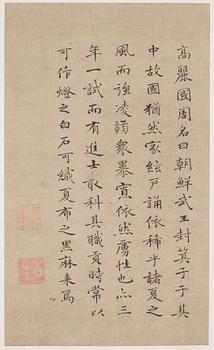 高麗國周名曰朝鮮武王封箕子于其
中故國猶然家絃戶誦依稀乎諸夏之
風而強凌弱眾暴寡依然虜性也亦三
年一試而有進士取科其職貢時常以
可作燈之白石可織夏布之黑麻来焉